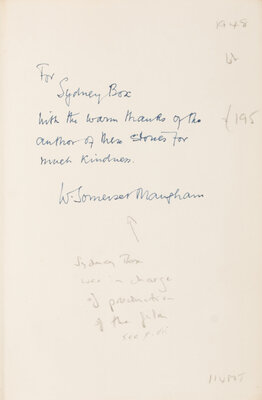 1948
For
Sydney Box
£195
with the warm thanks of the
author of these stories for
much kindness.
W. Somerset Maugham
Sydney Box
was in charge
of production
of the film
see p.